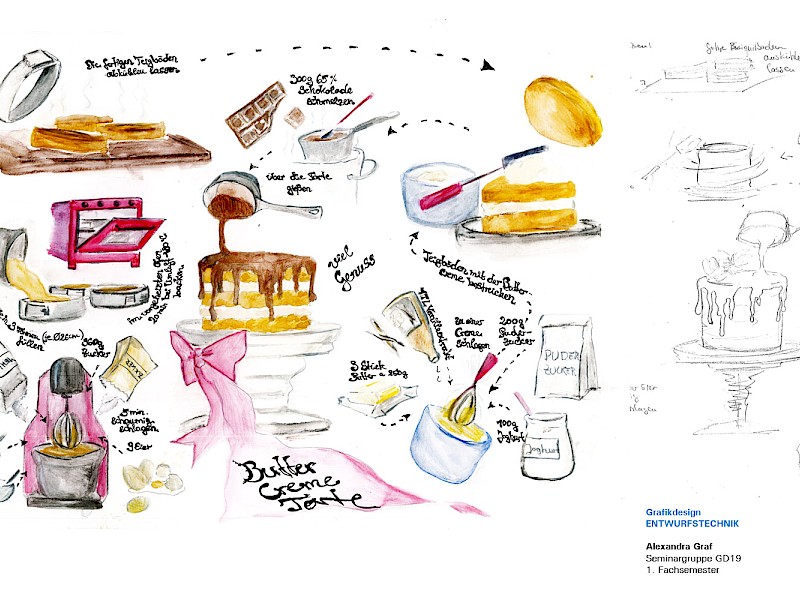 Die fertigen Teigböden
abkühlen lassen
300g 65%
Schokolade
schmelzen
über die Torte
gießen
viel
Genuss
Teigböden mit der Butter-
creme bestricken
im vorgeheizten Ofen
20 min bei Umluft 180°C
backen.
füllen
360g
Zucker
5 min.
schaumig
schlagen
9 Eier
3 Stück
Butter a 250g
1TL Vanilleextrakt
zu einer
Creme
schlagen
200g
Puder-
zucker
PUDER
ZUCKER
100g
Joghurt
Joghurt
Butter
Creme
Torte
lassen
Grafikdesign
ENTWURFSTECHNIK
Alexandra Graf
Seminargruppe GD19
1. Fachsemester